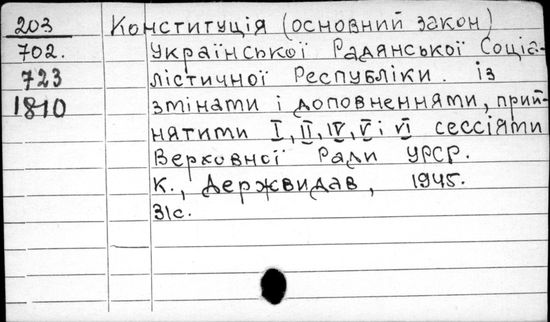 203 Конституція (основний закон)
702. Української Радянської Соціа-
723 лістичної Республіки. із
1810 змінами і доповненнями, прий-
нятими I, II, IV, V і VI сессіями
Верховної Ради УРСР.
К., Держвидав, 1945.
31с.